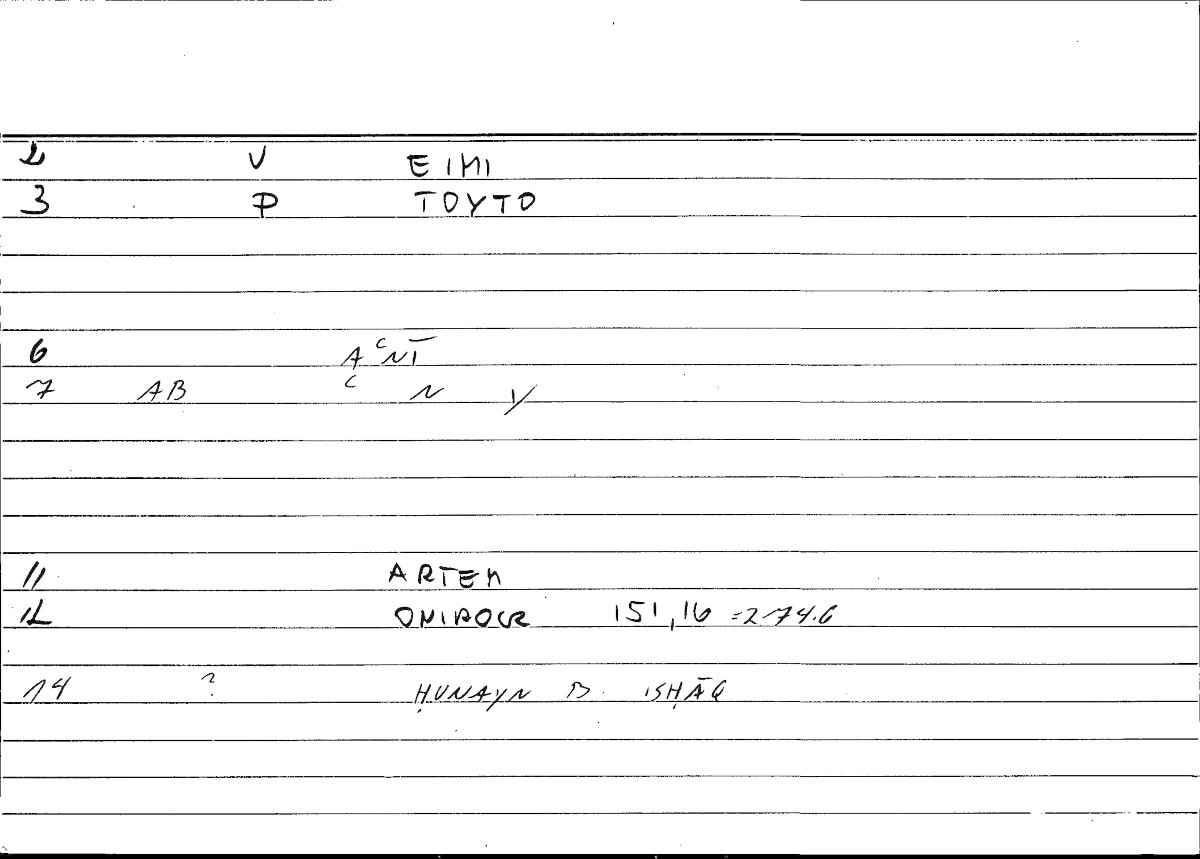 2 V EIMI
3 P TOYTO
6 AᶜNĪ
7 AB ᶜ N Y
11 ARTEM
12 ONIROCR 151,16 =274.6
14 ? ḤUNAYN B. ISḤĀQ